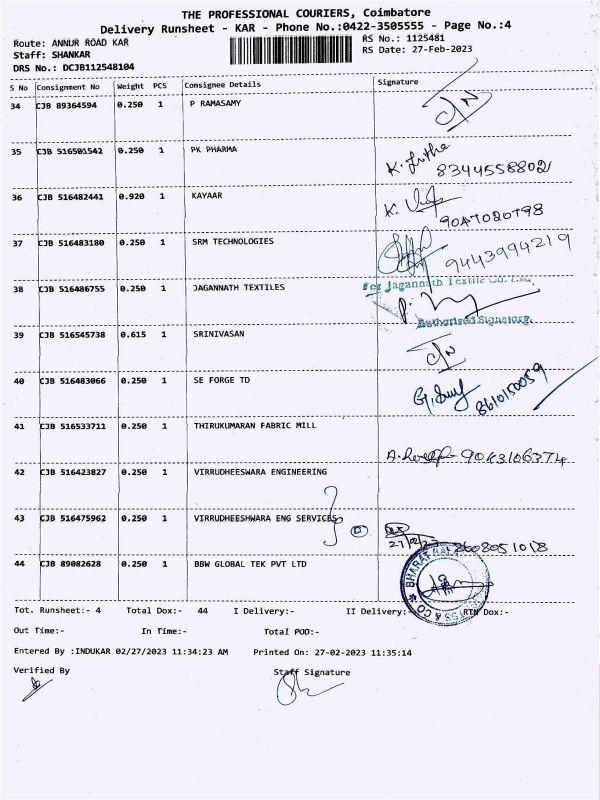 THE PROFESSIONAL COURIERS, Coimbatore
Delivery Runsheet - KAR - Phone No.:0422-3505555 - Page No.:4
Route: ANNUR ROAD KAR RS No.: 1125481
Staff: SHANKAR RS Date: 27-Feb-2023
DRS No.: DCJB112548104
S No Consignment No Weight PCS Consignee Details Signature
34 CJB 89364594 0.250 1 P RAMASAMY
35 CJB 516501542 0.250 1 PK PHARMA
K. 8344558802
36 CJB 516482441 0.920 1 KAYAAR
K. 9047020798
37 CJB 516483180 0.250 1 SRM TECHNOLOGIES
9443994219
38 CJB 516486755 0.250 1 JAGANNATH TEXTILES For Jagannath Textile Co. Ltd.,
Authorised Signatory.
39 CJB 516545738 0.615 1 SRINIVASAN
40 CJB 516483066 0.250 1 SE FORGE TD
8610150059
41 CJB 516533711 0.250 1 THIRUKUMARAN FABRIC MILL
9043106374
42 CJB 516423827 0.250 1 VIRRUDHEESWARA ENGINEERING
43 CJB 516475962 0.250 1 VIRRUDHEESHWARA ENG SERVICES
8608051018
44 CJB 89082628 0.250 1 BBW GLOBAL TEK PVT LTD
Tot. Runsheet:- 4 Total Dox:- 44 I Delivery:- II Delivery:- RTN Dox:-
Out Time:- In Time:- Total POD:-
Entered By :INDUKAR 02/27/2023 11:34:23 AM Printed On: 27-02-2023 11:35:14
Verified By Staff Signature